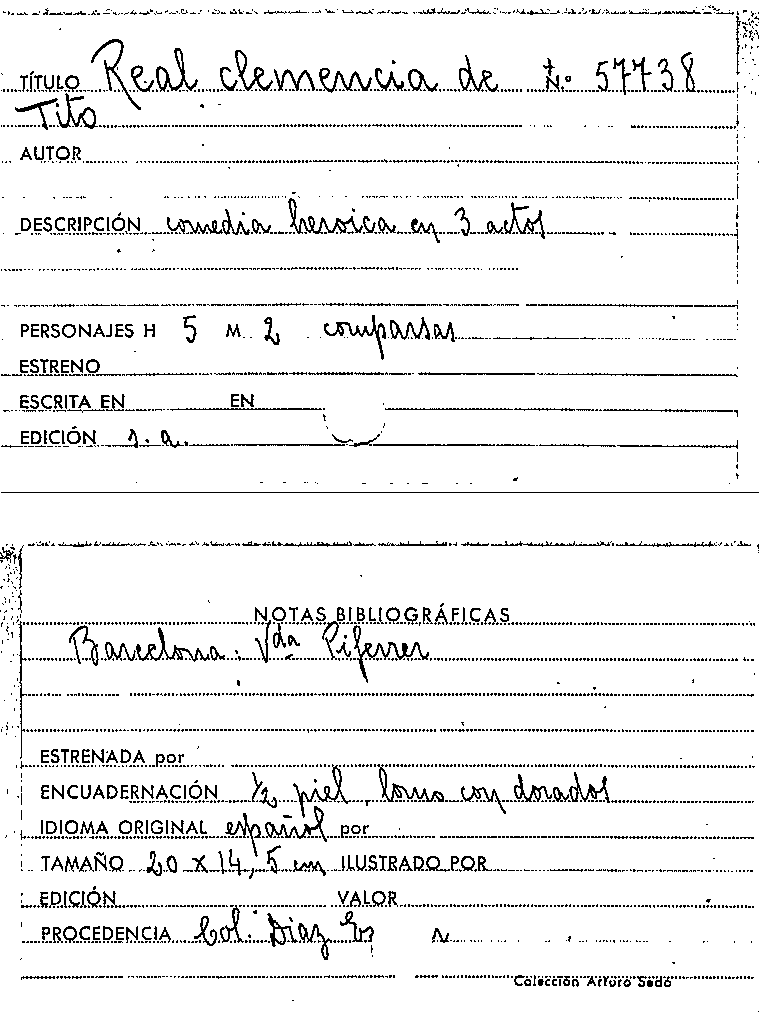 TÍTULO Real clemencia de N.º 57738
Tito
AUTOR
DESCRIPCIÓN comedia heroica en 3 actos
PERSONAJES H 5 M. 2 comparsas
ESTRENO
ESCRITA EN EN
EDICIÓN s. a.
NOTAS BIBLIOGRÁFICAS
Barcelona: Vda Piferrer
ESTRENADA por
ENCUADERNACIÓN 1/2 piel, lomo con dorados
IDIOMA ORIGINAL español por
TAMAÑO 20 x 14,5 cm ILUSTRADO POR
EDICIÓN VALOR
PROCEDENCIA Col. Diaz
Colección Arturo Sedó